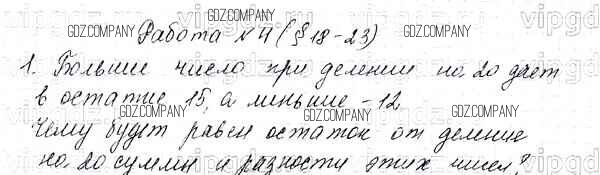 Работа №4 (§18-23)
1. Больше число при делении на 20 дает
в остатке 15, а меньше - 12
Чему будет равен остаток от деление
на 20 суммы и разности этих чисел?
GDZ.COMPANY
GDZ.COMPANY
GDZ.COMPANY
GDZ.COMPANY
GDZ.COMPANY
GDZ.COMPANY